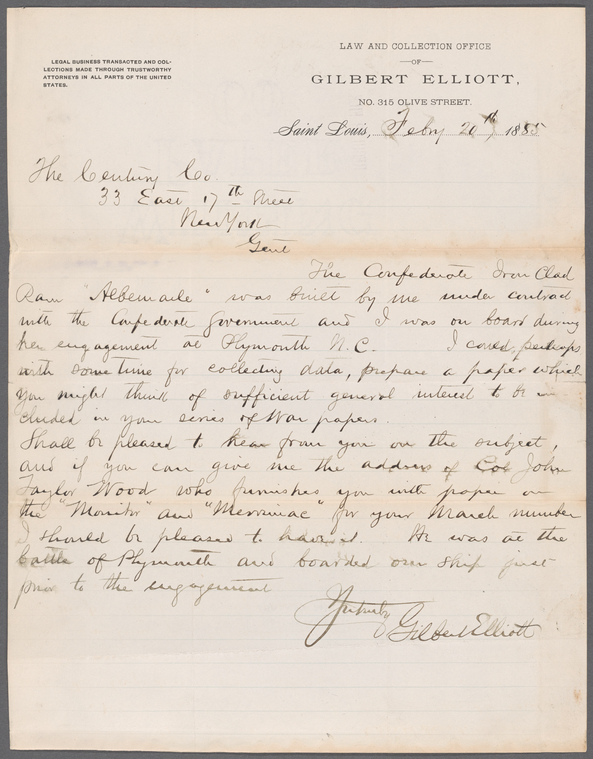 LEGAL BUSINESS TRANSACTED AND COL-
LECTIONS MADE THROUGH TRUSTWORTHY
ATTORNEYS IN ALL PARTS OF THE UNITED
STATES.
LAW AND COLLECTION OFFICE
—OF—
GILBERT ELLIOTT,
NO. 315 OLIVE STREET.
Saint Louis, Feby 20th, 1885
The Century Co.
33 East 17th Street
New York
Gent
The Confederate Iron Clad
Ram "Albemarle" was built by me under contract
with the Confederate Government and I was on board during
her engagement at Plymouth N.C. I could, perhaps
with some time for collecting data, prepare a paper which
you might think of sufficient general interest to be in
cluded in your series of War papers.
Shall be pleased to hear from you on the subject,
and if you can give me the address of Col John
Taylor Wood who furnishes you with paper on
the "Monitor" and "Merrimac" for your March number
I should be pleased to have it. He was at the
battle of Plymouth and boarded our ship just
prior to the engagement
Yours truly
Gilbert Elliott